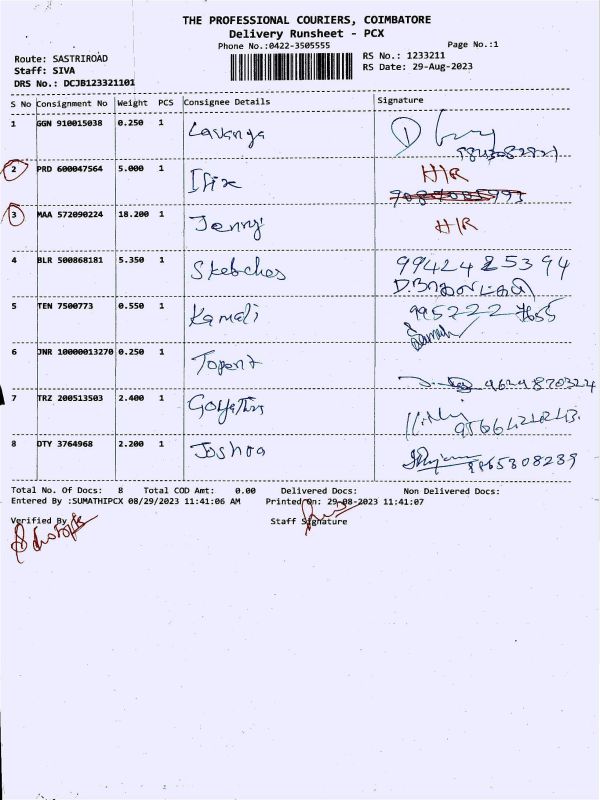 THE PROFESSIONAL COURIERS, COIMBATORE
Delivery Runsheet - PCX
Phone No.:0422-3505555
Page No.:1
Route: SASTRIROAD
RS No.: 1233211
Staff: SIVA
RS Date: 29-Aug-2023
DRS No.: DCJB123321101
S No Consignment No Weight PCS Consignee Details Signature
1 GGN 910015038 0.250 1 Lavanya
2 PRD 600047564 5.000 1 H/R
3 MAA 572090224 18.200 1 Jenny H/R
4 BLR 500868181 5.350 1 Sketches 9942485394
5 TEN 7500773 0.550 1 Kamali 995222 7655
6 JNR 10000013270 0.250 1 9629870324
7 TRZ 200513503 2.400 1
8 DTY 3764968 2.200 1 Joshua
Total No. Of Docs: 8 Total COD Amt: 0.00 Delivered Docs: Non Delivered Docs:
Entered By :SUMATHIPCX 08/29/2023 11:41:06 AM Printed On: 29-08-2023 11:41:07
Verified By
Staff Signature